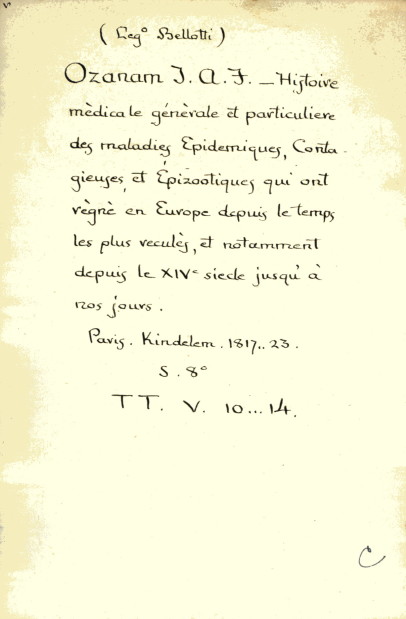 ( Leg° Bellotti )
Ozanam J. A. F. — Histoire
mèdicale génèrale et particuliere
des maladies Epidemiques, Conta-
gieuses, et Épizootiques qui ont
règnè en Europe depuis le temps
les plus reculès, et notamment
depuis le XIVe siecle jusqu'à
nos jours.
Paris. Kindelem. 1817.. 23.
S. 8°
TT. V. 10... 14.
C